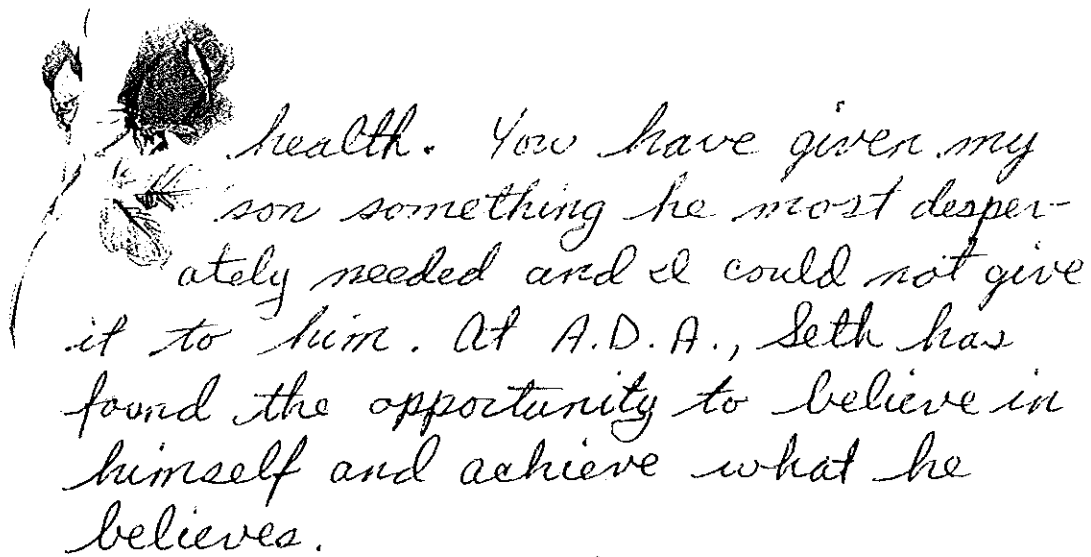 health. You have given my
son something he most desper-
ately needed and I could not give
it to him. At A.D.A., Seth has
found the opportunity to believe in
himself and achieve what he
believes.